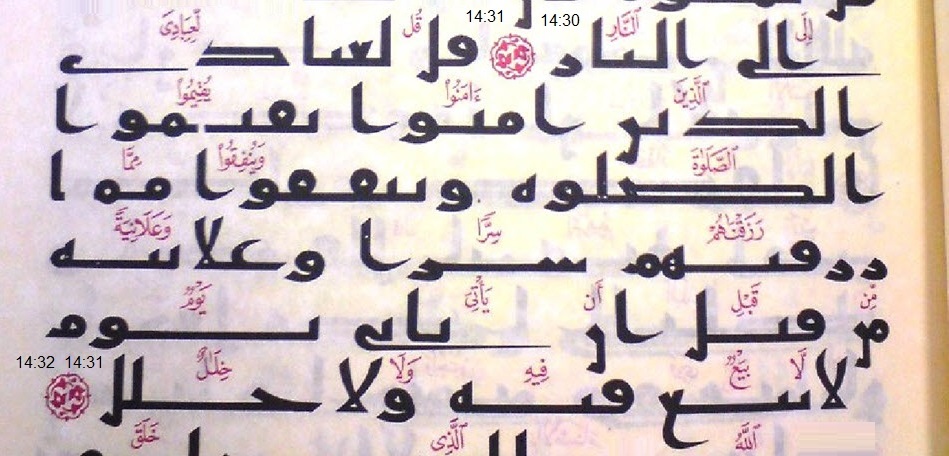 14:31 14:30
إِلَى ٱلنَّارِ قُل لِّعِبَادِىَ
الى النار قل لعبادى
ٱلَّذِينَ ءَامَنُوا۟ يُقِيمُوا۟
الذين امنوا يقيموا
ٱلصَّلَوٰةَ وَيُنفِقُوا۟ مِمَّا
الصلوه وينفقوا مما
رَزَقْنَٰهُمْ سِرًّا وَعَلَانِيَةً
رزقنهم سرا وعلانيه
مِّن قَبْلِ أَن يَأْتِىَ يَوْمٌ
من قبل ان ياتى يوم
14:32 14:31
لَّا بَيْعٌ فِيهِ وَلَا خِلَٰلٌ
لا بيع فيه ولا خلل
ٱللَّهُ ٱلَّذِى خَلَقَ